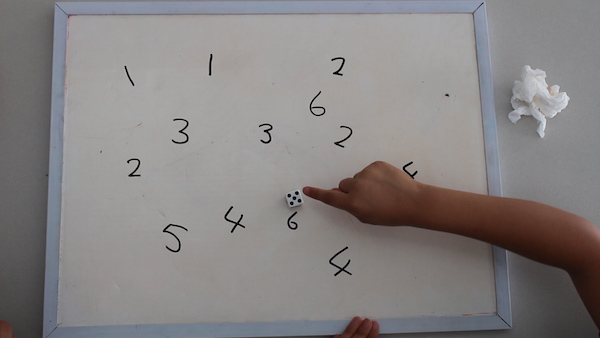 1 1 2
6
3 3 2
2 4
5 4 6
4